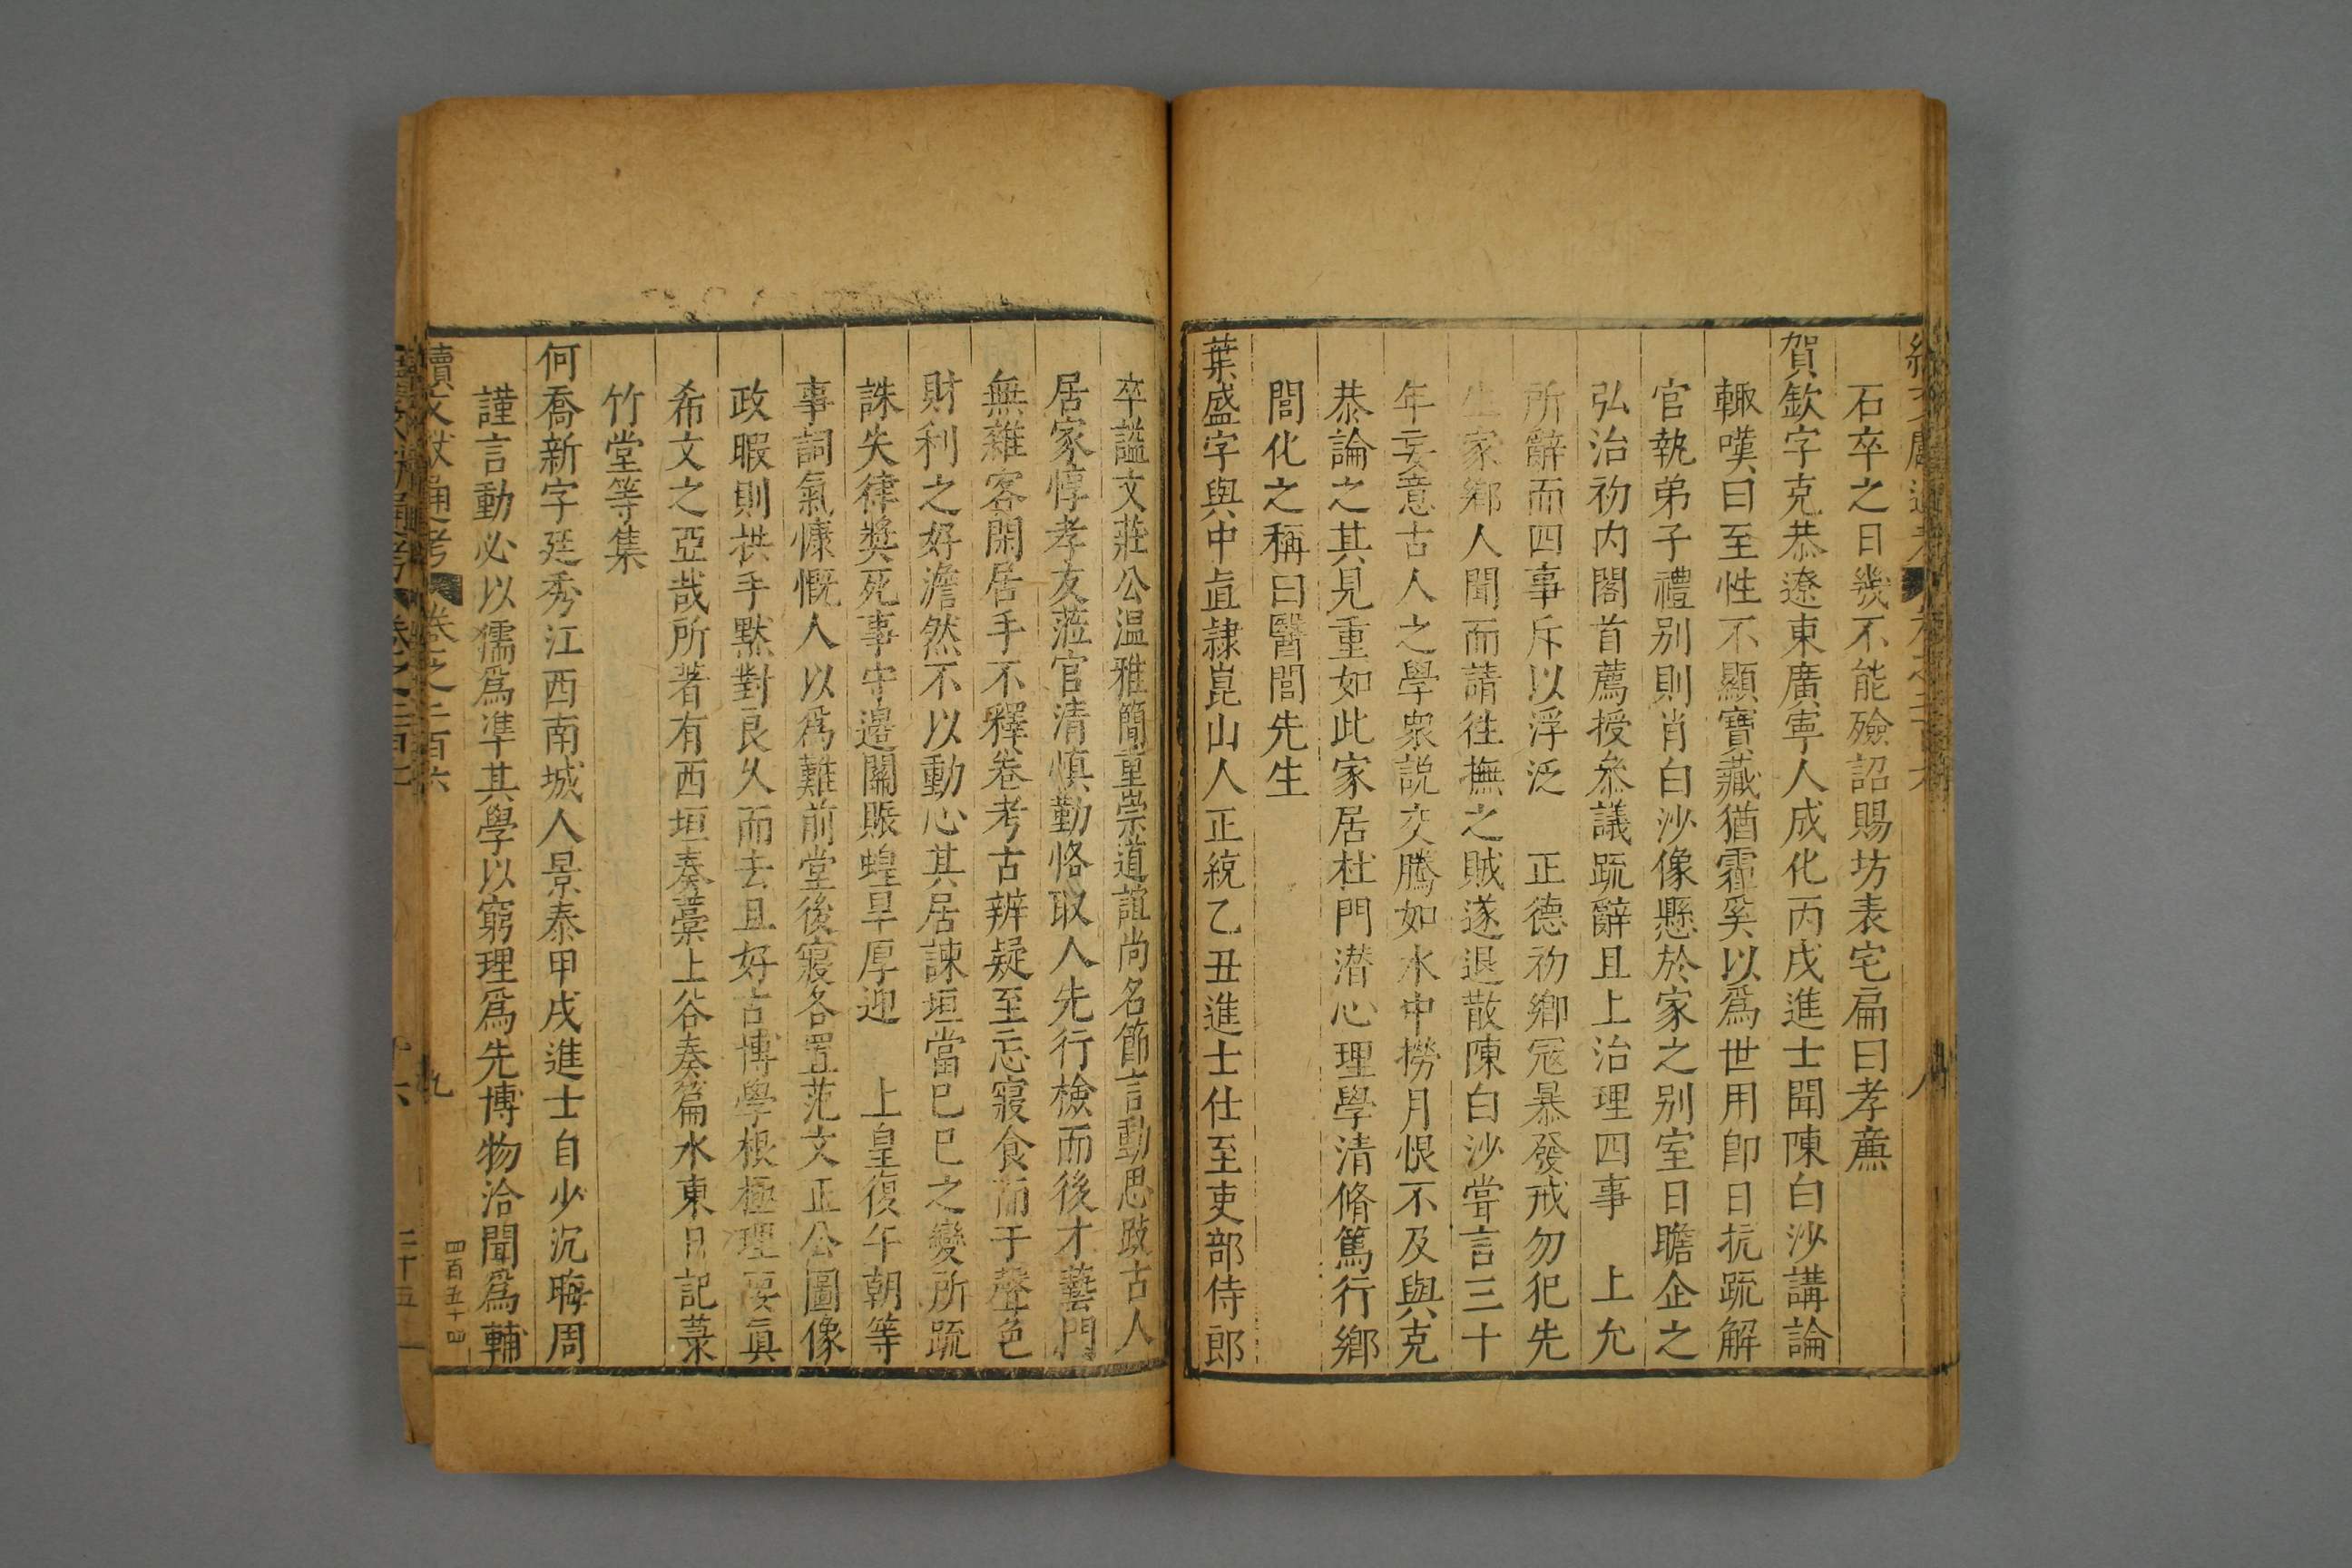 石卒之日幾不能殮詔賜坊表宅扁曰孝廉
賀欽字克恭遼東廣寧人成化丙戌進士聞陳白沙講論
輙嘆曰至性不顯寶藏猶霾奚以爲世用卽日抗疏解
官執弟子禮别則肖白沙像懸於家之别室日瞻企之
弘治初内閣首薦授叅議疏辭且上治理四事 上允
所辭而四事斥以浮泛 正德初鄉冦暴發戒勿犯先
生家鄉人聞而請往撫之賊遂退散陳白沙嘗言三十
年妄意古人之學衆説交騰如水中撈月恨不及與克
恭論之其見重如此家居杜門潜心理學清脩篤行鄉
閭化之稱曰醫閭先生
葉盛字與中直隷崑山人正統乙丑進士仕至吏部侍郎
卒謚文莊公温雅簡重崇道誼尚名節言動思跂古人
居家惇孝友蒞官清慎勤恪取人先行檢而後才藝門
無雜客閑居手不釋卷考古辨疑至忘寢食而于聲色
財利之好澹然不以動心其居諫垣當巳巳之變所疏
誅失律獎死事守邊關賑蝗旱厚迎 上皇復午朝等
事詞氣慷慨人以爲難前堂後寢各置范文正公圖像
政暇則拱手黙對良久而去且好古博學根極理要眞
希文之亞哉所著有西垣奏藁上谷奏篇水東日記菉
竹堂等集
何喬新字廷秀江西南城人景泰甲戌進士自少沉晦周
謹言動必以濡爲凖其學以窮理爲先博物洽聞爲輔
續文献通考 卷之二百六 九 四百五十四